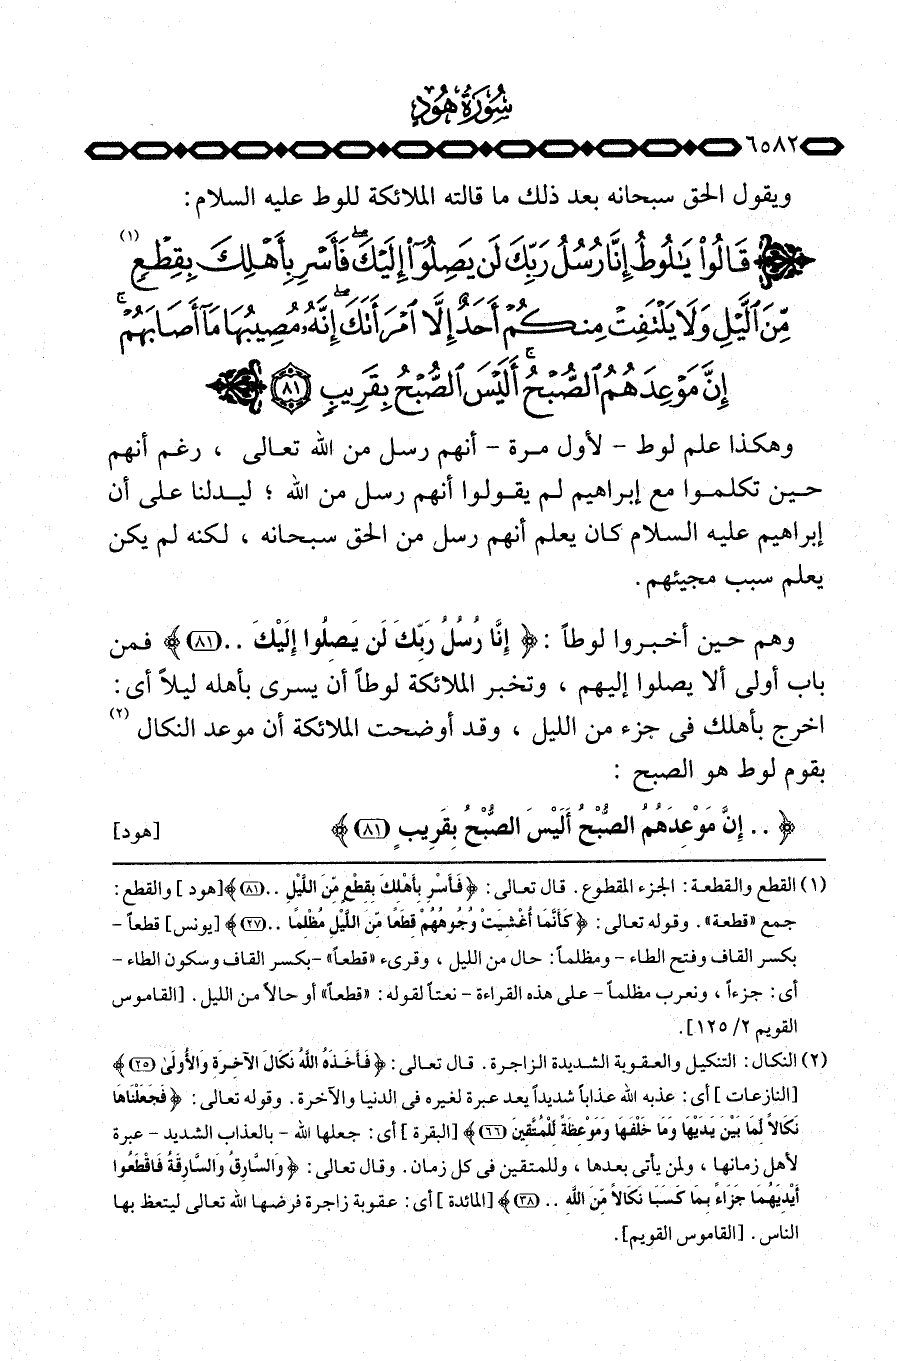 سُورَةُ هُودٍ
٦٥٨٢
ويقول الحق سبحانه بعد ذلك ما قالته الملائكة للوط عليه السلام:
قَالُوا۟ يَٰلُوطُ إِنَّا رُسُلُ رَبِّكَ لَن يَصِلُوٓا۟ إِلَيْكَ ۖ فَأَسْرِ بِأَهْلِكَ بِقِطْعٍ (١)
مِّنَ ٱلَّيْلِ وَلَا يَلْتَفِتْ مِنكُمْ أَحَدٌ إِلَّا ٱمْرَأَتَكَ ۖ إِنَّهُۥ مُصِيبُهَا مَآ أَصَابَهُمْ ۚ
إِنَّ مَوْعِدَهُمُ ٱلصُّبْحُ ۚ أَلَيْسَ ٱلصُّبْحُ بِقَرِيبٍ ٨١
وهكذا علم لوط - لأول مرة - أنهم رسل من الله تعالى ، رغم أنهم
حين تكلموا مع إبراهيم لم يقولوا أنهم رسل من الله ؛ ليدلنا على أن
إبراهيم عليه السلام كان يعلم أنهم رسل من الحق سبحانه ، لكنه لم يكن
يعلم سبب مجيئهم.
وهم حين أخبروا لوطاً : ﴿ إِنَّا رُسُلُ رَبِّكَ لَن يَصِلُوا إِلَيْكَ .. (٨١)﴾ فمن
باب أولى ألا يصلوا إليهم ، وتخبر الملائكة لوطاً أن يسرى بأهله ليلاً أى:
اخرج بأهلك فى جزء من الليل ، وقد أوضحت الملائكة أن موعد النكال (٢)
بقوم لوط هو الصبح :
﴿ .. إِنَّ مَوْعِدَهُمُ الصُّبْحُ أَلَيْسَ الصُّبْحُ بِقَرِيبٍ (٨١)﴾ [هود]
(١) القطع والقطعة: الجزء المقطوع. قال تعالى: ﴿ فَأَسْرِ بِأَهْلِكَ بِقِطْعٍ مِّنَ اللَّيْلِ .. (٨١)﴾[هود ] والقطع:
جمع «قطعة». وقوله تعالى: ﴿ كَأَنَّمَا أُغْشِيَتْ وُجُوهُهُمْ قِطَعًا مِّنَ اللَّيْلِ مُظْلِمًا .. (٢٧)﴾ [يونس] قطعاً -
بكسر القاف وفتح الطاء - ومظلماً: حال من الليل ، وقرىء «قطعاً» -بكسر القاف وسكون الطاء -
أى: جزءاً ، ونعرب مظلماً- على هذه القراءة - نعتاً لقوله: «قطعاً» أو حالاً من الليل. [القاموس
القويم ٢/ ١٢٥].
(٢) النكال: التنكيل والعقوبة الشديدة الزاجرة. قال تعالى: ﴿ فَأَخَذَهُ اللَّهُ نَكَالَ الآخِرَةِ وَالأُولَىٰ (٢٥) ﴾
[النازعات ] أى: عذبه الله عذاباً شديداً يعد عبرة لغيره فى الدنيا والآخرة. وقوله تعالى: ﴿ فَجَعَلْنَاهَا
نَكَالاً لِّمَا بَيْنَ يَدَيْهَا وَمَا خَلْفَهَا وَمَوْعِظَةً لِّلْمُتَّقِينَ (٦٦) ﴾ [البقرة ] أى: جعلها الله - بالعذاب الشديد - عبرة
لأهل زمانها ، ولمن يأتى بعدها ، وللمتقين فى كل زمان. وقال تعالى: ﴿ وَالسَّارِقُ وَالسَّارِقَةُ فَاقْطَعُوا
أَيْدِيَهُمَا جَزَاءً بِمَا كَسَبَا نَكَالاً مِّنَ اللَّهِ .. (٣٨)﴾ [المائدة ] أى: عقوبة زاجرة فرضها الله تعالى ليتعظ بها
الناس. [القاموس القويم].